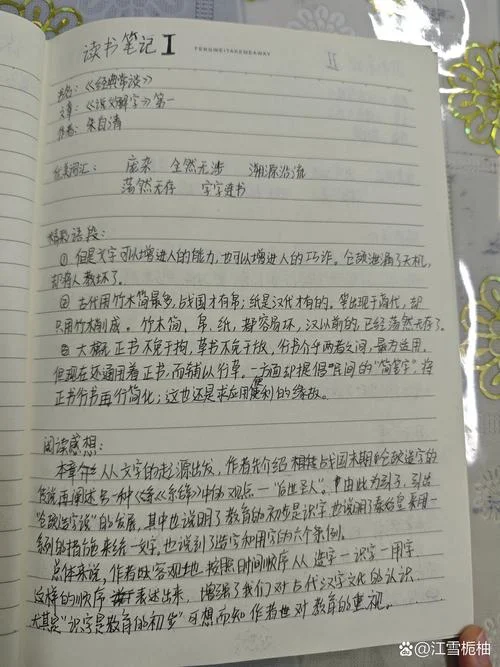 读书笔记 I
FENGWEITAKEMEAWAY
书名:《经典常谈》
文章:《说文解字》第一
作者:朱自清
优美词汇: 庞杂 全然无涉 溯源沿流
荡然无存 字字珠书
精彩语段:
① 但是文字可以增进人的能力,也可以增进人的巧诈。仓颉泄漏了天机,
却将人教坏了。
② 古代用竹木简最多,战国才有帛;纸是汉代才有的。笔出现于商代,却
只用竹木削成。竹木简、帛、纸,都容易坏,汉以前的,已经荡然无存了。
③ 大概正书不免于拘,草书不免于放,行书介乎两者之间,最为适用。
但现在还通用着正书,而辅以行草。一方面却提倡民间的“简笔字”,将
正书行书再行简化;这也还是求应用便利的缘故。
阅读感想:
本章从文字的起源出发,作者先介绍战国末期仓颉造字的
传说再阐述另一种《系辞》中的观点—“后世圣人”。由此为引子,引出
“仓颉造字说”的发展,其中也说明了教育的初步是识字,也说明了秦始皇采用一
系列的措施来统一文字,也说到了造字和用字的六个条例。
总体来说,作者很客观地按照时间顺序从造字—识字—用字
这样的顺序表述出来,增强了我们对古代汉字文化的认识。
尤其是“识字是教育的初步”可想而知作者也对教育的重视。
@江雪栀柚